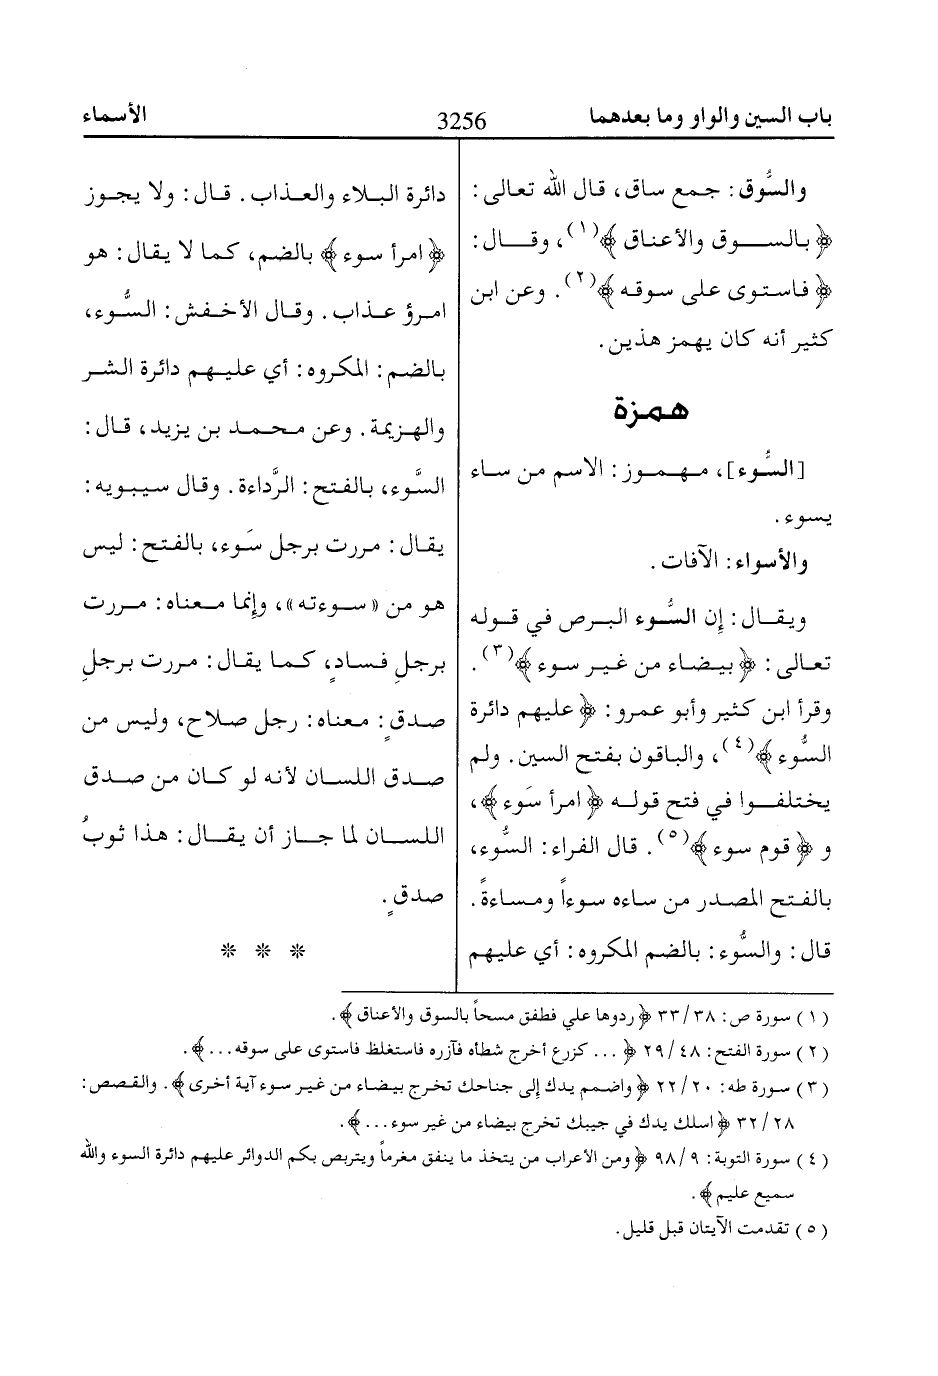 باب السين والواو وما بعدهما
3256
الأسماء
والسُّوق: جمع ساق، قال الله تعالى:
﴿ بالسوق والأعناق ﴾(١)، وقال:
﴿ فاستوى على سوقه ﴾(٢). وعن ابن
كثير أنه كان يهمز هذين.
همزة
[السُّوء]، مهموز: الاسم من ساء
يسوء.
والأسواء: الآفات.
ويقال: إن السُّوء البرص في قوله
تعالى: ﴿ بيضاء من غير سوء ﴾(٣).
وقرأ ابن كثير وأبو عمرو: ﴿ عليهم دائرة
السُّوء ﴾(٤)، والباقون بفتح السين. ولم
يختلفوا في فتح قوله ﴿ امرأ سَوء ﴾،
و ﴿ قوم سوء ﴾(٥). قال الفراء: السُّوء،
بالفتح المصدر من ساءه سوءاً ومساءةً.
قال: والسُّوء: بالضم المكروه: أي عليهم
دائرة البلاء والعذاب. قال: ولا يجوز
﴿ امرأ سوء ﴾ بالضم، كما لا يقال: هو
امرؤ عذاب. وقال الأخفش: السُّوء،
بالضم: المكروه: أي عليهم دائرة الشر
والهزيمة. وعن محمد بن يزيد، قال:
السَّوء، بالفتح: الرَّداءة. وقال سيبويه:
يقال: مررت برجل سَوء، بالفتح: ليس
هو من «سوءته»، وإنما معناه: مررت
برجلِ فسادٍ، كما يقال: مررت برجلِ
صدقٍ: معناه: رجل صلاح، وليس من
صدق اللسان لأنه لو كان من صدق
اللسان لما جاز أن يقال: هذا ثوبُ
صدقٍ.
* * *
(١) سورة ص: ٣٣/٣٨ ﴿ ردوها علي فطفق مسحاً بالسوق والأعناق ﴾.
(٢) سورة الفتح: ٢٩/٤٨ ﴿ ... كزرع أخرج شطأه فآزره فاستغلظ فاستوى على سوقه... ﴾.
(٣) سورة طه: ٢٢/٢٠ ﴿ واضمم يدك إلى جناحك تخرج بيضاء من غير سوء آية أخرى ﴾. والقصص:
٣٢/٢٨ ﴿ اسلك يدك في جيبك تخرج بيضاء من غير سوء... ﴾.
(٤) سورة التوبة: ٩٨/٩ ﴿ ومن الأعراب من يتخذ ما ينفق مغرماً ويتربص بكم الدوائر عليهم دائرة السوء والله
سميع عليم ﴾.
(٥) تقدمت الآيتان قبل قليل.